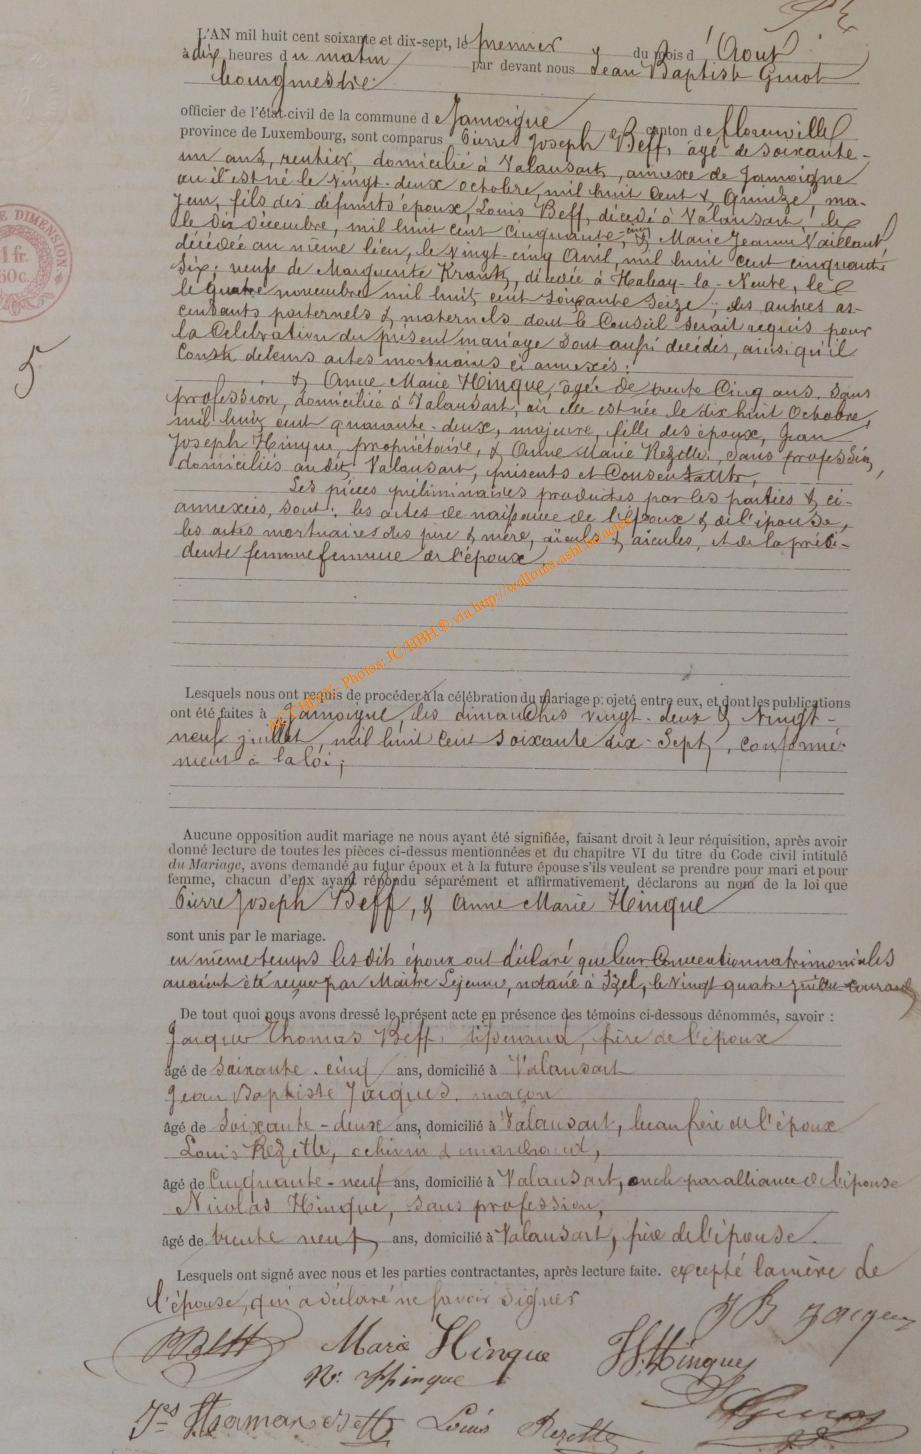 L'AN mil huit cent soixante et dix-sept, le premier du mois d'Aout
à dix heures du matin par devant nous Jean Baptiste Guiot
bourgmestre
officier de l'état-civil de la commune de Jamoigne canton de florenville
province de Luxembourg, sont comparus Pierre Joseph Beff, âgé de soixante-
un ans, rentier, domicilié à Valansart, annexe de Jamoigne
où il est né le vingt-deux octobre mil huit cent & quinze, ma-
jeur, fils des défunts époux, Louis Beff, décédé à Valansart le
le dix Décembre, mil huit cent cinquante cinq & Marie Jeanne Vaillant
décédée au même lieu, le vingt-cinq Avril, mil huit cent cinquante
six; veuf de Marguerite Krantz, décédée à Habay-la-Neuve, le
le quatre novembre mil huit cent soixante seize; les autres as-
cendants paternels & maternels dont le Conseil serait requis pour
la Célébration du présent mariage sont aussi décédés, ainsi qu'il
Conste de leurs actes mortuaires ci annexés:
& Anne Marie Hinque, âgée de trente cinq ans, sans
profession, domiciliée à Valansart, où elle est née le dix huit Octobre,
mil huit cent quarante-deux, majeure, fille des époux, Jean
Joseph Hinque, propriétaire, & Anne Marie Rezette, sans profession,
domiciliés audit Valansart, présents et Consentants,
Les pièces préliminaires produites par les parties & ci-
annexées, sont: les actes de naissance de l'époux & de l'épouse,
les actes mortuaires des père & mère, aïeuls & aïeules, et de la précé-
dente femme femme de l'époux.
Lesquels nous ont requis de procéder à la célébration du mariage projeté entre eux, et dont les publications
ont été faites à Jamoigne, les dimanches vingt-deux & vingt-
neuf juillet, mil huit cent soixante dix-sept, conformé-
ment à la loi;
Aucune opposition audit mariage ne nous ayant été signifiée, faisant droit à leur réquisition, après avoir
donné lecture de toutes les pièces ci-dessus mentionnées et du chapitre VI du titre du Code civil intitulé
du Mariage, avons demandé au futur époux et à la future épouse s'ils veulent se prendre pour mari et pour
femme, chacun d'eux ayant répondu séparément et affirmativement, déclarons au nom de la loi que
Pierre Joseph Beff, & Anne Marie Hinque
sont unis par le mariage.
en même temps lesdits époux ont déclaré que leur Convention matrimoniales
avaient été reçues par Maître Lejeune, notaire à Izel, le vingt quatre courant
De tout quoi nous avons dressé le présent acte en présence des témoins ci-dessous dénommés, savoir :
Jacques Thomas Beff, frère de l'époux
âgé de soixante-cinq ans, domicilié à Valansart
Jean Baptiste Jacques, maçon
âgé de soixante-deux ans, domicilié à Valansart, beau frère de l'époux
Louis Rezette, échevin & marchand,
âgé de Cinquante-neuf ans, domicilié à Valansart, oncle par alliance de l'épouse
Nicolas Hinque, sans profession,
âgé de trente neuf ans, domicilié à Valansart, frère de l'épouse.
Lesquels ont signé avec nous et les parties contractantes, après lecture faite. excepté la mère de
l'épouse, qui a déclaré ne savoir signer
J B Jacques
PJBeff Marie Hinque JJ. Hinque
N. Hinque
Louis Rezette
5
DIMENSION
1 fr.
60c.